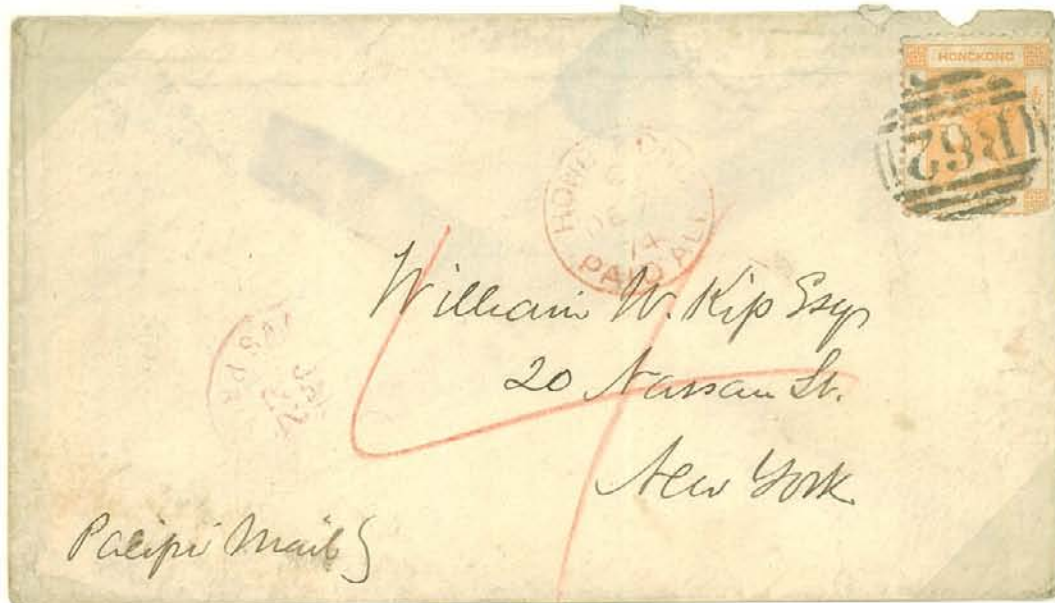 HONGKONG
B62
HONG
DE
74
PAID ALL
William W. Kip Esqr
20 Nassau St.
New York
4
Pacific Mail S